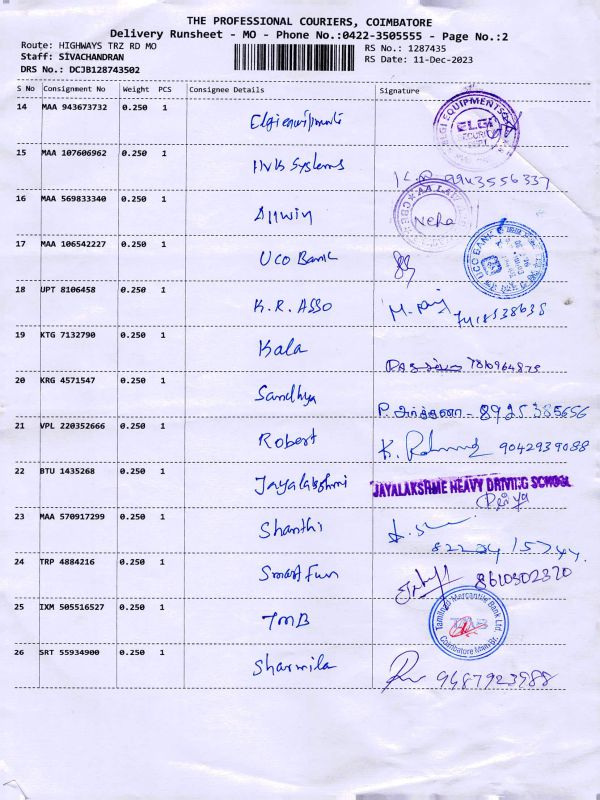 THE PROFESSIONAL COURIERS, COIMBATORE
Delivery Runsheet - MO - Phone No.:0422-3505555 - Page No.:2
Route: HIGHWAYS TRZ RD MO
RS No.: 1287435
Staff: SIVACHANDRAN
RS Date: 11-Dec-2023
DRS No.: DCJB128743502
S No Consignment No Weight PCS Consignee Details Signature
14 MAA 943673732 0.250 1 Elgi equipments ELGI
15 MAA 107606962 0.250 1 HVB Systems 9943556337
16 MAA 569833340 0.250 1 Allwin Neha
17 MAA 106542227 0.250 1 UCO Bank UCO BANK
18 UPT 8106458 0.250 1 K.R. ASSO M.
19 KTG 7132790 0.250 1 Kala
20 KRG 4571547 0.250 1 Sandhya P. - 8925385656
21 VPL 220352666 0.250 1 Robert K. 9042939088
22 BTU 1435268 0.250 1 Jayalakshmi JAYALAKSHME HEAVY DRIVING SCHOOL
Priya
23 MAA 570917299 0.250 1 Shanthi
24 TRP 4884216 0.250 1 Smart Fun 8610302320
25 IXM 505516527 0.250 1 TMB Tamilnad Mercantile Bank Ltd Coimbatore Main Br.
26 SRT 55934900 0.250 1 Sharmila 9487923988